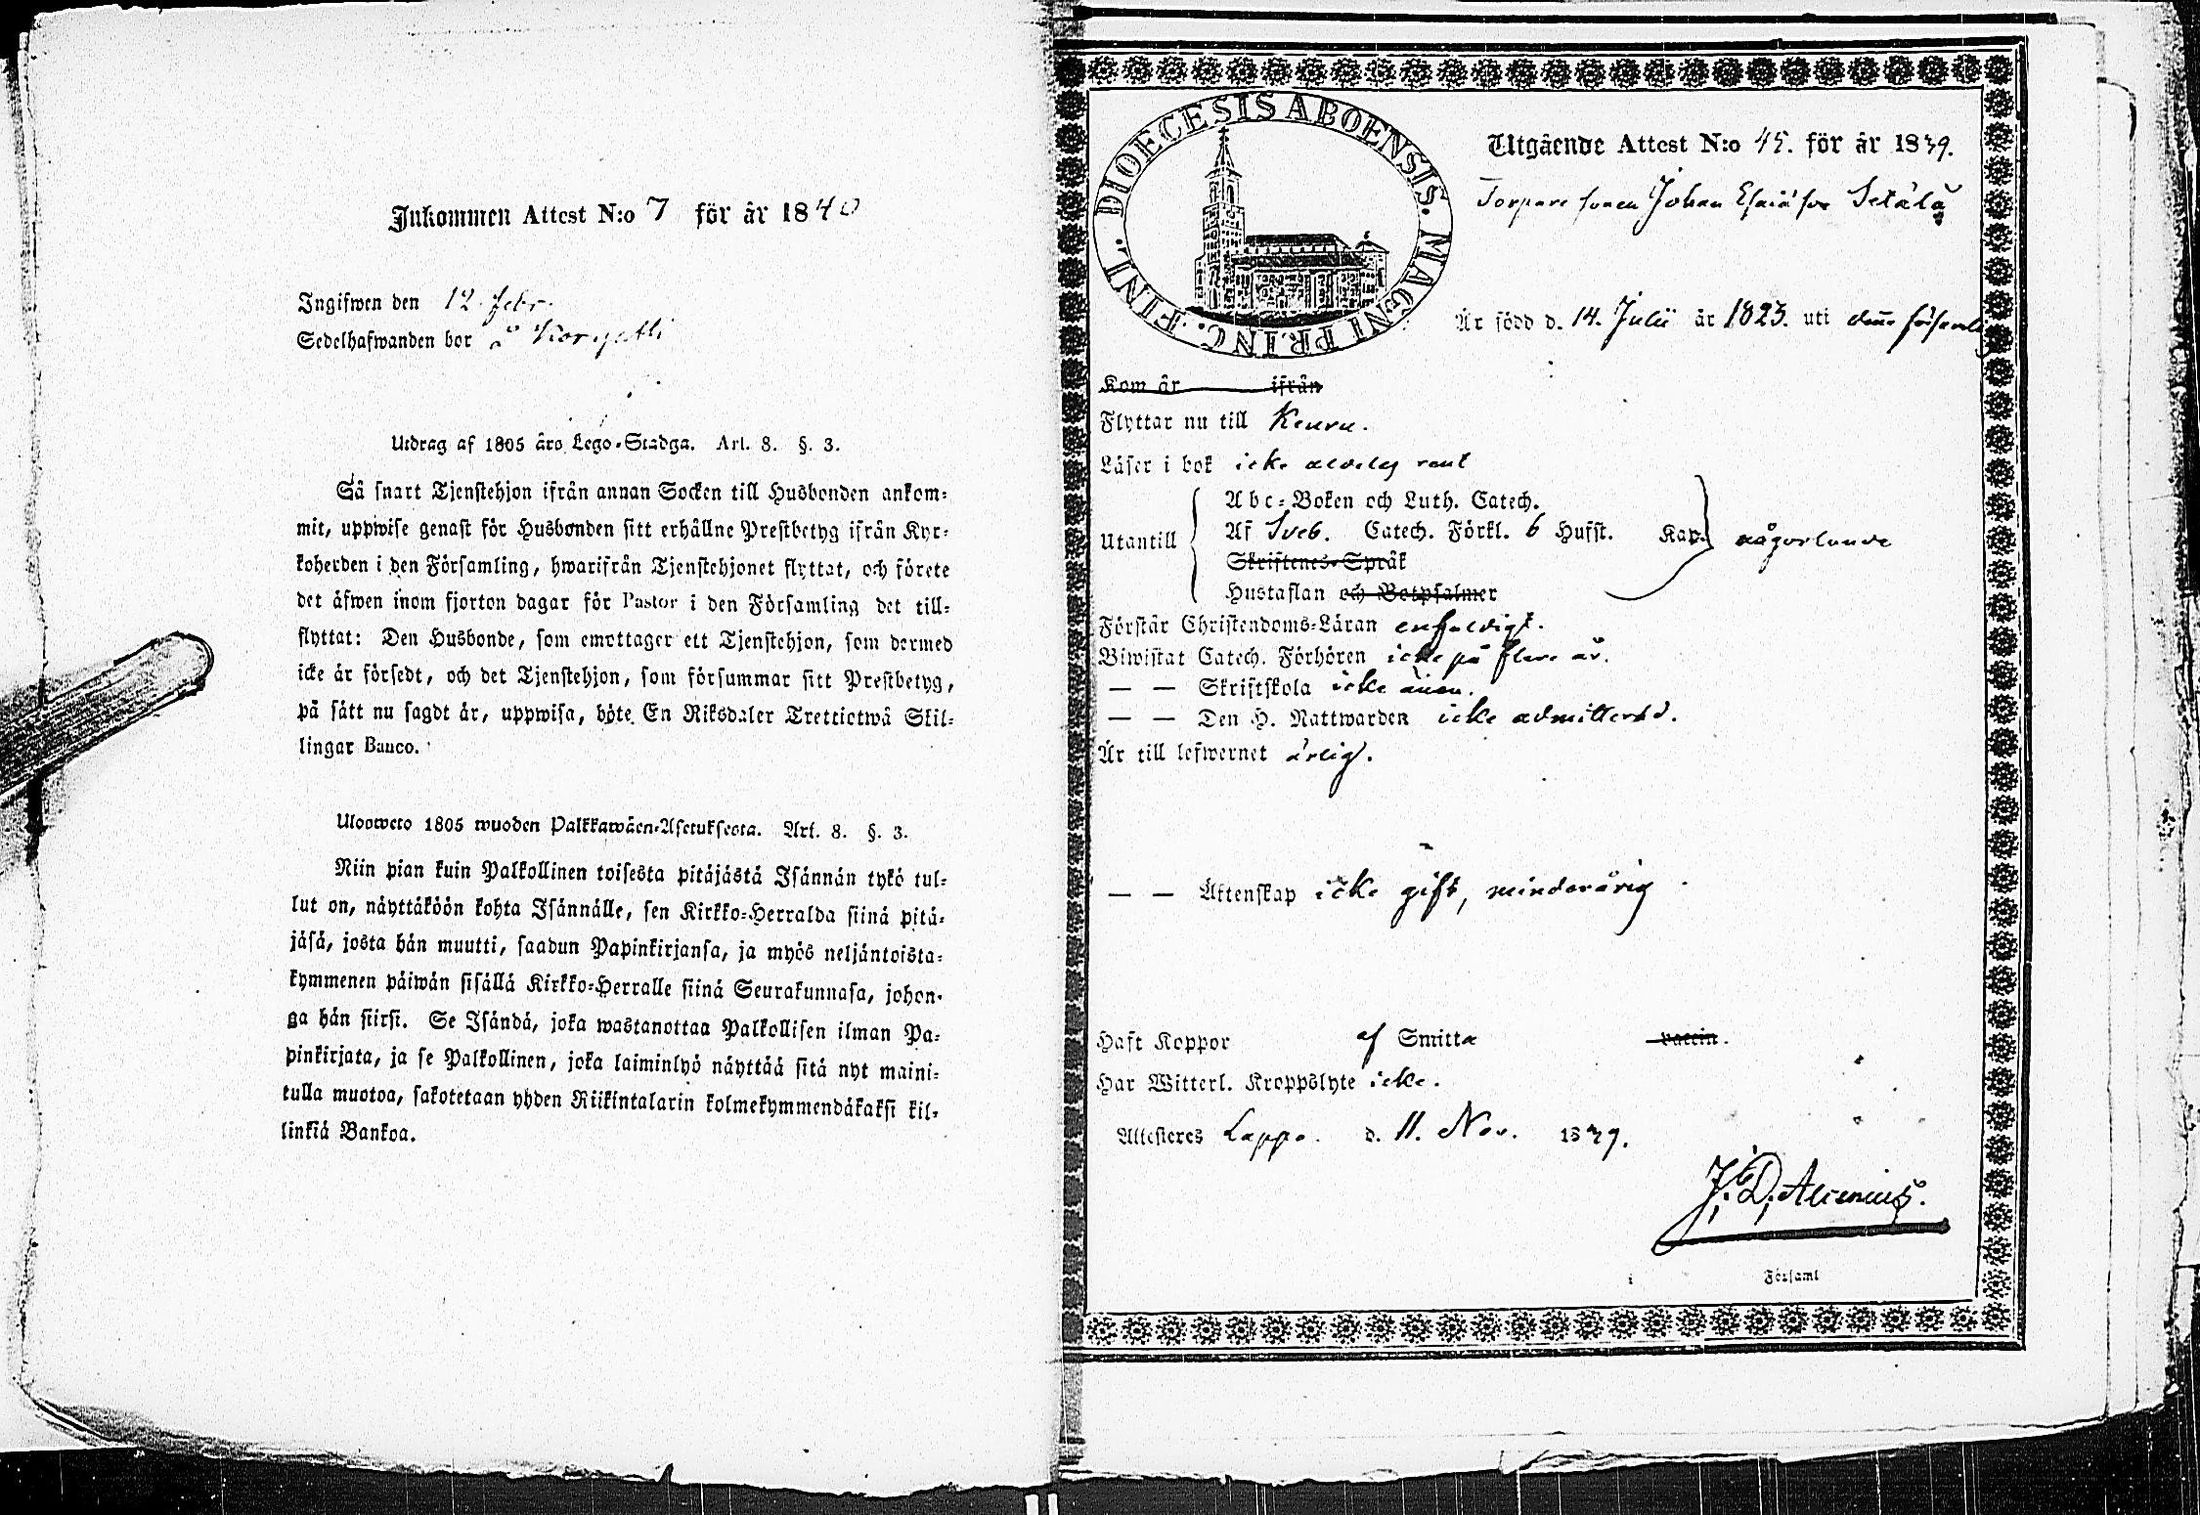 Inkommen Attest N:o 7 för år 1840
Ingifwen den 12. febr.
Sedelhafwanden bor å
Utdrag af 1805 års Lego-Stadga. Art. 8. §. 3.
Så snart Tjenstehjon ifrån annan Socken till Husbonden ankom-
mit, uppwise genast för Husbonden sitt erhållne Prestbetyg ifrån Kyr-
koherden i den Församling, hwarifrån Tjenstehjonet flyttat, och förete
det äfwen inom fjorton dagar för Pastor i den Församling det till-
flyttat: Den Husbonde, som emottager ett Tjenstehjon, som dermed
icke är försedt, och det Tjenstehjon, som försummar sitt Prestbetyg,
på sätt nu sagdt är, uppwisa, böte En Riksdaler Trettiotwå Skil-
lingar Banco.
Ulosweto 1805 wuoden Palkkawäen-Asetuksesta. Art. 8. §. 3.
Niin pian kuin Palkollinen toisesta pitäjästä Isännän tykö tul-
lut on, näyttäköön kohta Isännälle, sen Kirkko-Herralda siinä pitä-
jäsä, josta hän muutti, saadun Papinkirjansa, ja myös neljäntoista-
kymmenen päiwän sisällä Kirkko-Herralle siinä Seurakunnasa, johon-
ga hän siirsi. Se Isändä, joka wastanottaa Palkollisen ilman Pa-
pinkirjata, ja se Palkollinen, joka laiminlyö näyttää sitä nyt maini-
tulla muotoa, sakotetaan yhden Riikintalarin kolmekymmendäkaksi kil-
linkiä Bankoa.
DIOECESIS ABOENSIS. MAGNI PRINC. FINL.
Utgående Attest N:o 45. för år 1839.
Torpare sonen Johan Esaiasson Setälä
Är född d. 14. Julii år 1823. uti denna församling
Kom år ifrån
Flyttar nu till Keuru.
Läser i bok icke alldeles rent
Abc-Boken och Luth. Catech.
Utantill Af Sveb. Catech. Förkl. 6 Hufst. Kap. någorlunda
Skriftenes-Språk
Hustaflan och Botpsalmer
Förstår Christendoms-Läran enfaldigt.
Biwistat Catech. Förhören icke på flere år.
— — Skriftskola icke ännu.
— — Den H. Nattwarden icke admitterad.
Är till lefwernet ärlig.
— — Äktenskap icke gift, minderårig
Haft Koppor af Smitta vaccin.
Har Witterl. Kroppslyte icke.
Attesteres Lappo. d. 11. Nov. 1839.
J. D. Alcenius.
i Församl